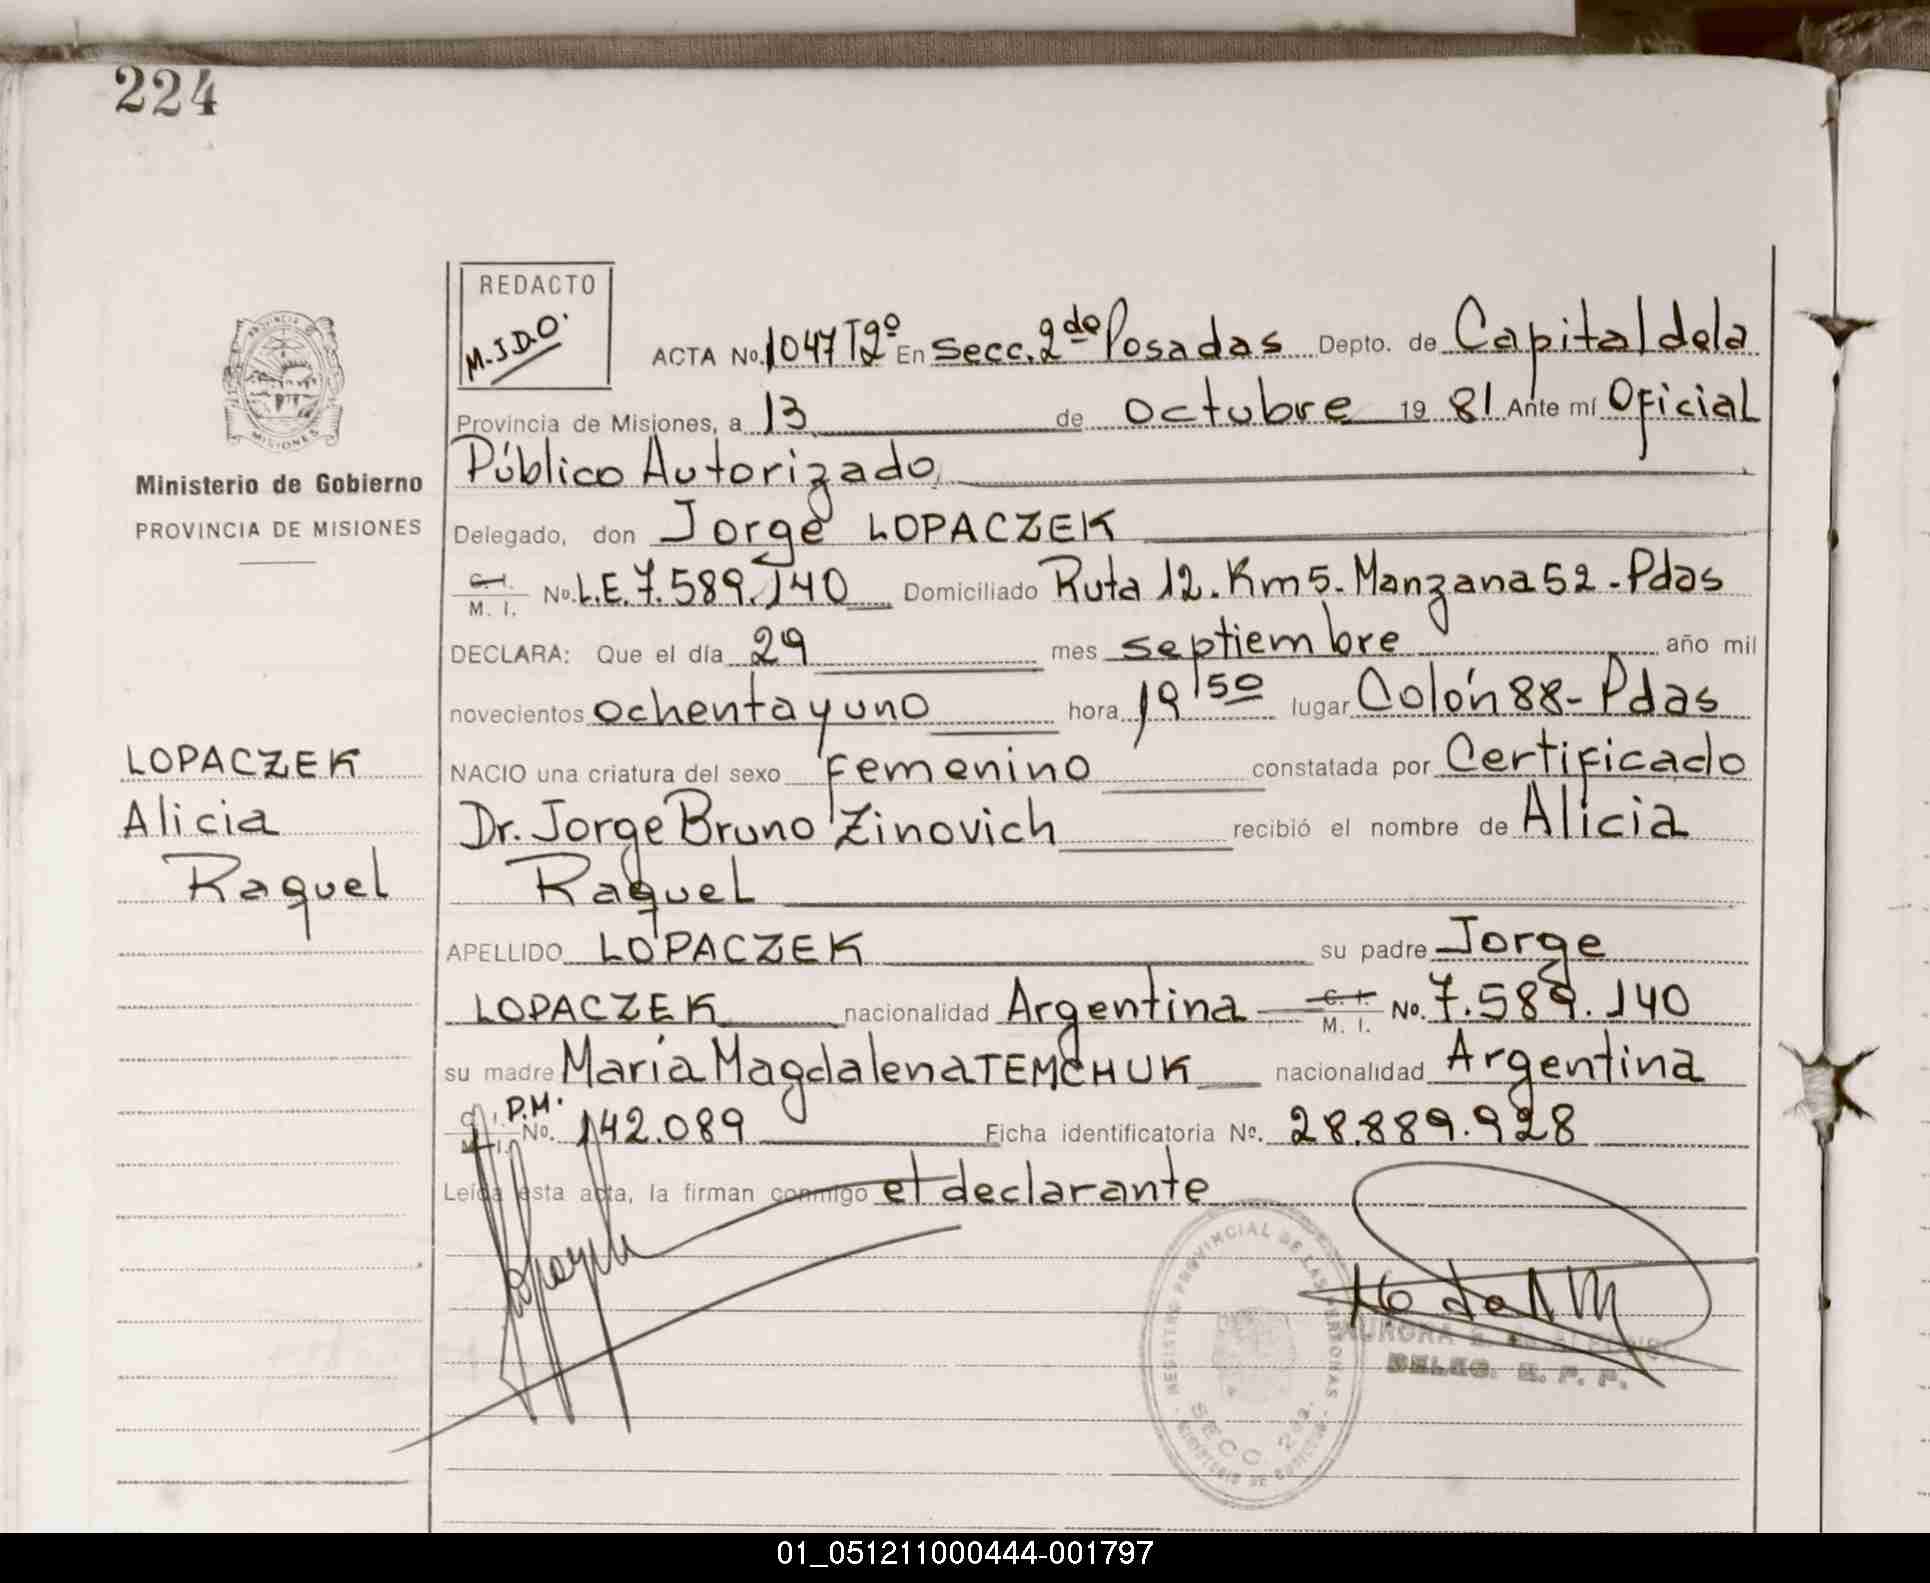 224
REDACTO
M.J.D.O.
ACTA No. 1047 T2º En Secc. 2da Posadas Depto. de Capital dela
Provincia de Misiones, a 13 de octubre 19 81 Ante mí Oficial
Público Autorizado,
Ministerio de Gobierno
PROVINCIA DE MISIONES
Delegado, don Jorge LOPACZEK
C. I. M. I. No. L.E. 7.589.140 Domiciliado Ruta 12. Km 5. Manzana 52 - Pdas
DECLARA: Que el día 29 mes septiembre año mil
novecientos ochenta y uno hora 19 50 lugar Colón 88 - Pdas
LOPACZEK
Alicia
Raquel
NACIO una criatura del sexo femenino constatada por Certificado
Dr. Jorge Bruno Zinovich recibió el nombre de Alicia
Raquel
APELLIDO LOPACZEK su padre Jorge
LOPACZEK nacionalidad Argentina C. I. M. I. No. 7.589.140
su madre María Magdalena TEMCHUK nacionalidad Argentina
C. I. M. I. P.M. No. 142.089 Ficha identificatoria No. 28.889.928
Leída esta acta, la firman conmigo el declarante
REGISTRO PROVINCIAL DE LAS PERSONAS
SECC 2da.
AURORA
DELEG. R. P. P.
01_051211000444-001797